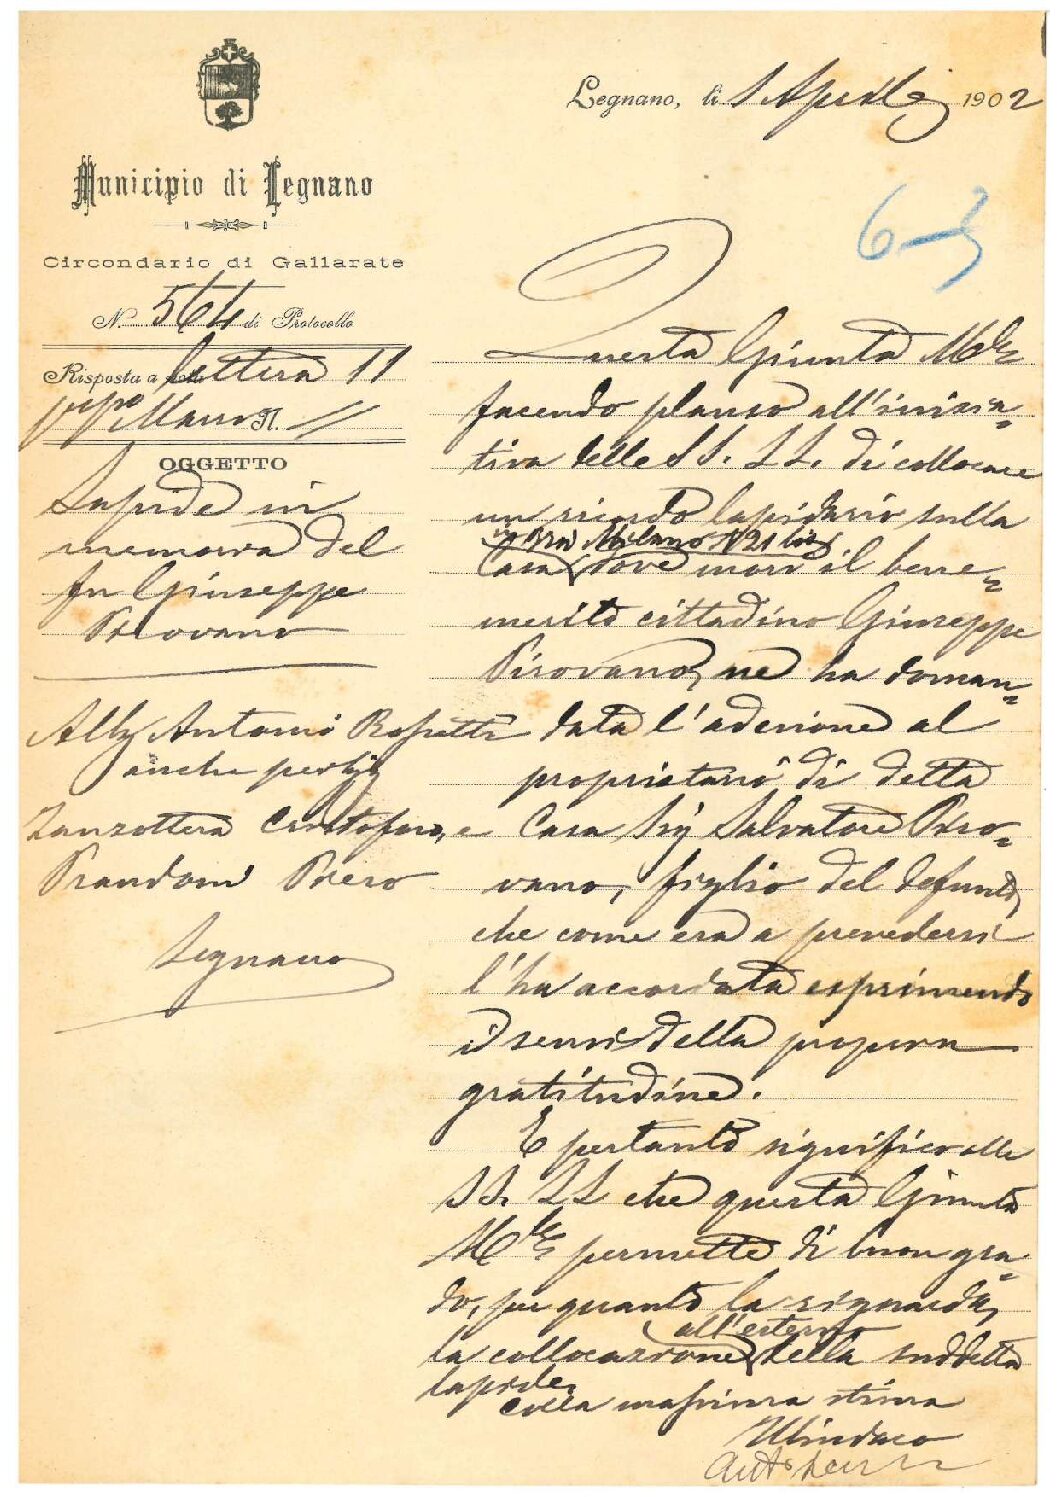 Legnano, li 1 Aprile 1902
6-3
Municipio di Legnano
Circondario di Gallarate
N. 564 di Protocollo
Risposta a lettera 11
pp.º Marzo N. //
OGGETTO
Lapide in
memoria del
fu Giuseppe
Pirovano
Antonio Rossetti
anche per gli
Zanzottera Cristoforo, e
Prandoni Piero
Legnano
Questa Giunta M.le
facendo plauso all'inizia=
tiva delle SS. LL. di collocare
un ricordo lapidario sulla
in via Milano N 21 bis
Casa, dove morì il bene=
merito cittadino Giuseppe
Pirovano, ne ha doman=
data l'adesione al
proprietario di detta
Casa Sig Salvatore Piro=
vano, figlio del defunto,
che come era a prevedersi
l'ha accordata esprimendo
i sensi della propria
gratitudine.
E pertanto significo alle
SS. LL che questa Giunta
M.le permette di buon gra=
do, per quanto la riguarda,
all'esterno
la collocazione della suddetta
lapide.
Colla massima stima
Il Sindaco